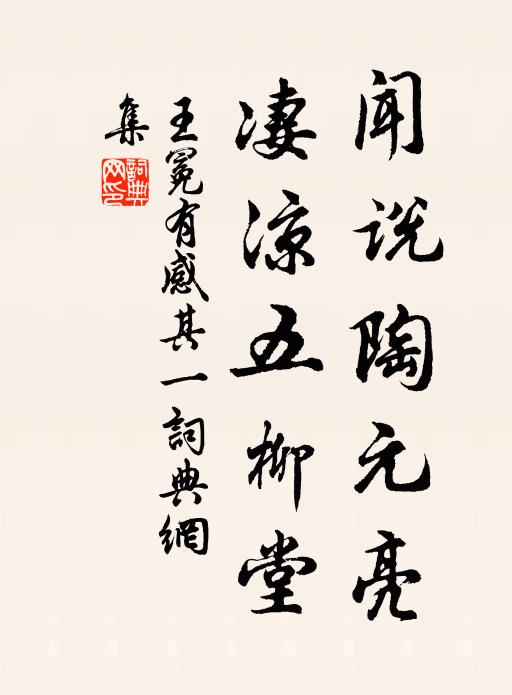 闻说陶元亮
凄凉五柳堂
王冕有感其一詞典網
集
詞典
网印